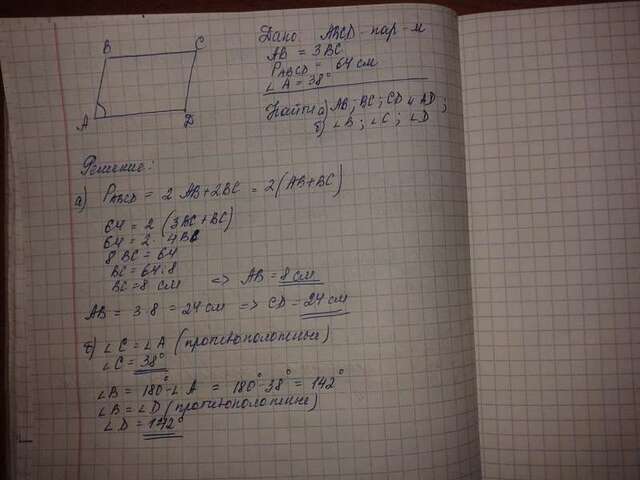 B C
A D
Дано ABCD - пар-м
AB = 3BC
PABCD = 64 см
∠A = 38°
Найти а) AB; BC; CD и AD;
б) ∠B; ∠C; ∠D
Решение:
а) PABCD = 2 AB+2BC = 2(AB+BC)
64 = 2 (3BC+BC)
64 = 2 · 4BC
8 BC = 64
BC = 64:8
BC = 8 см => AB = 8 см
AB = 3·8 = 24 см => CD = 24 см
б) ∠C = ∠A (противоположные)
∠C = 38°
∠B = 180°-∠A = 180°-38° = 142°
∠B = ∠D (противоположные)
∠D = 142°